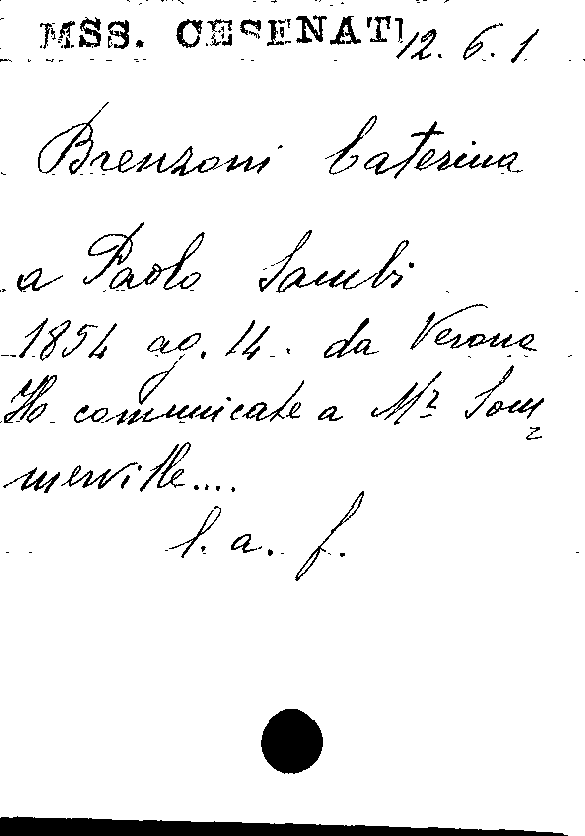 MSS. CESENATI 12. 6. 1
Brenzoni Caterina
a Paolo Sambi
1854 ag. 14. da Verona
Ho comunicate a Mr Som=
merville....
l. a. f.